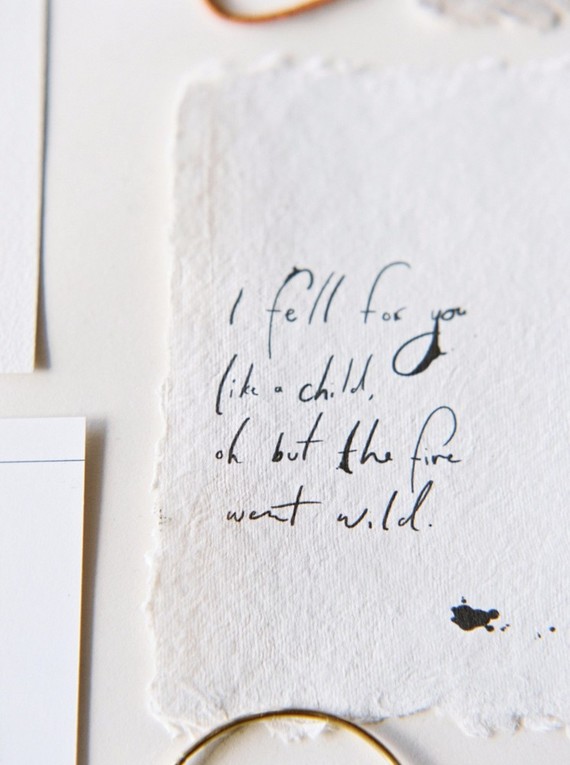 I fell for you
like a child,
oh but the fire
went wild.